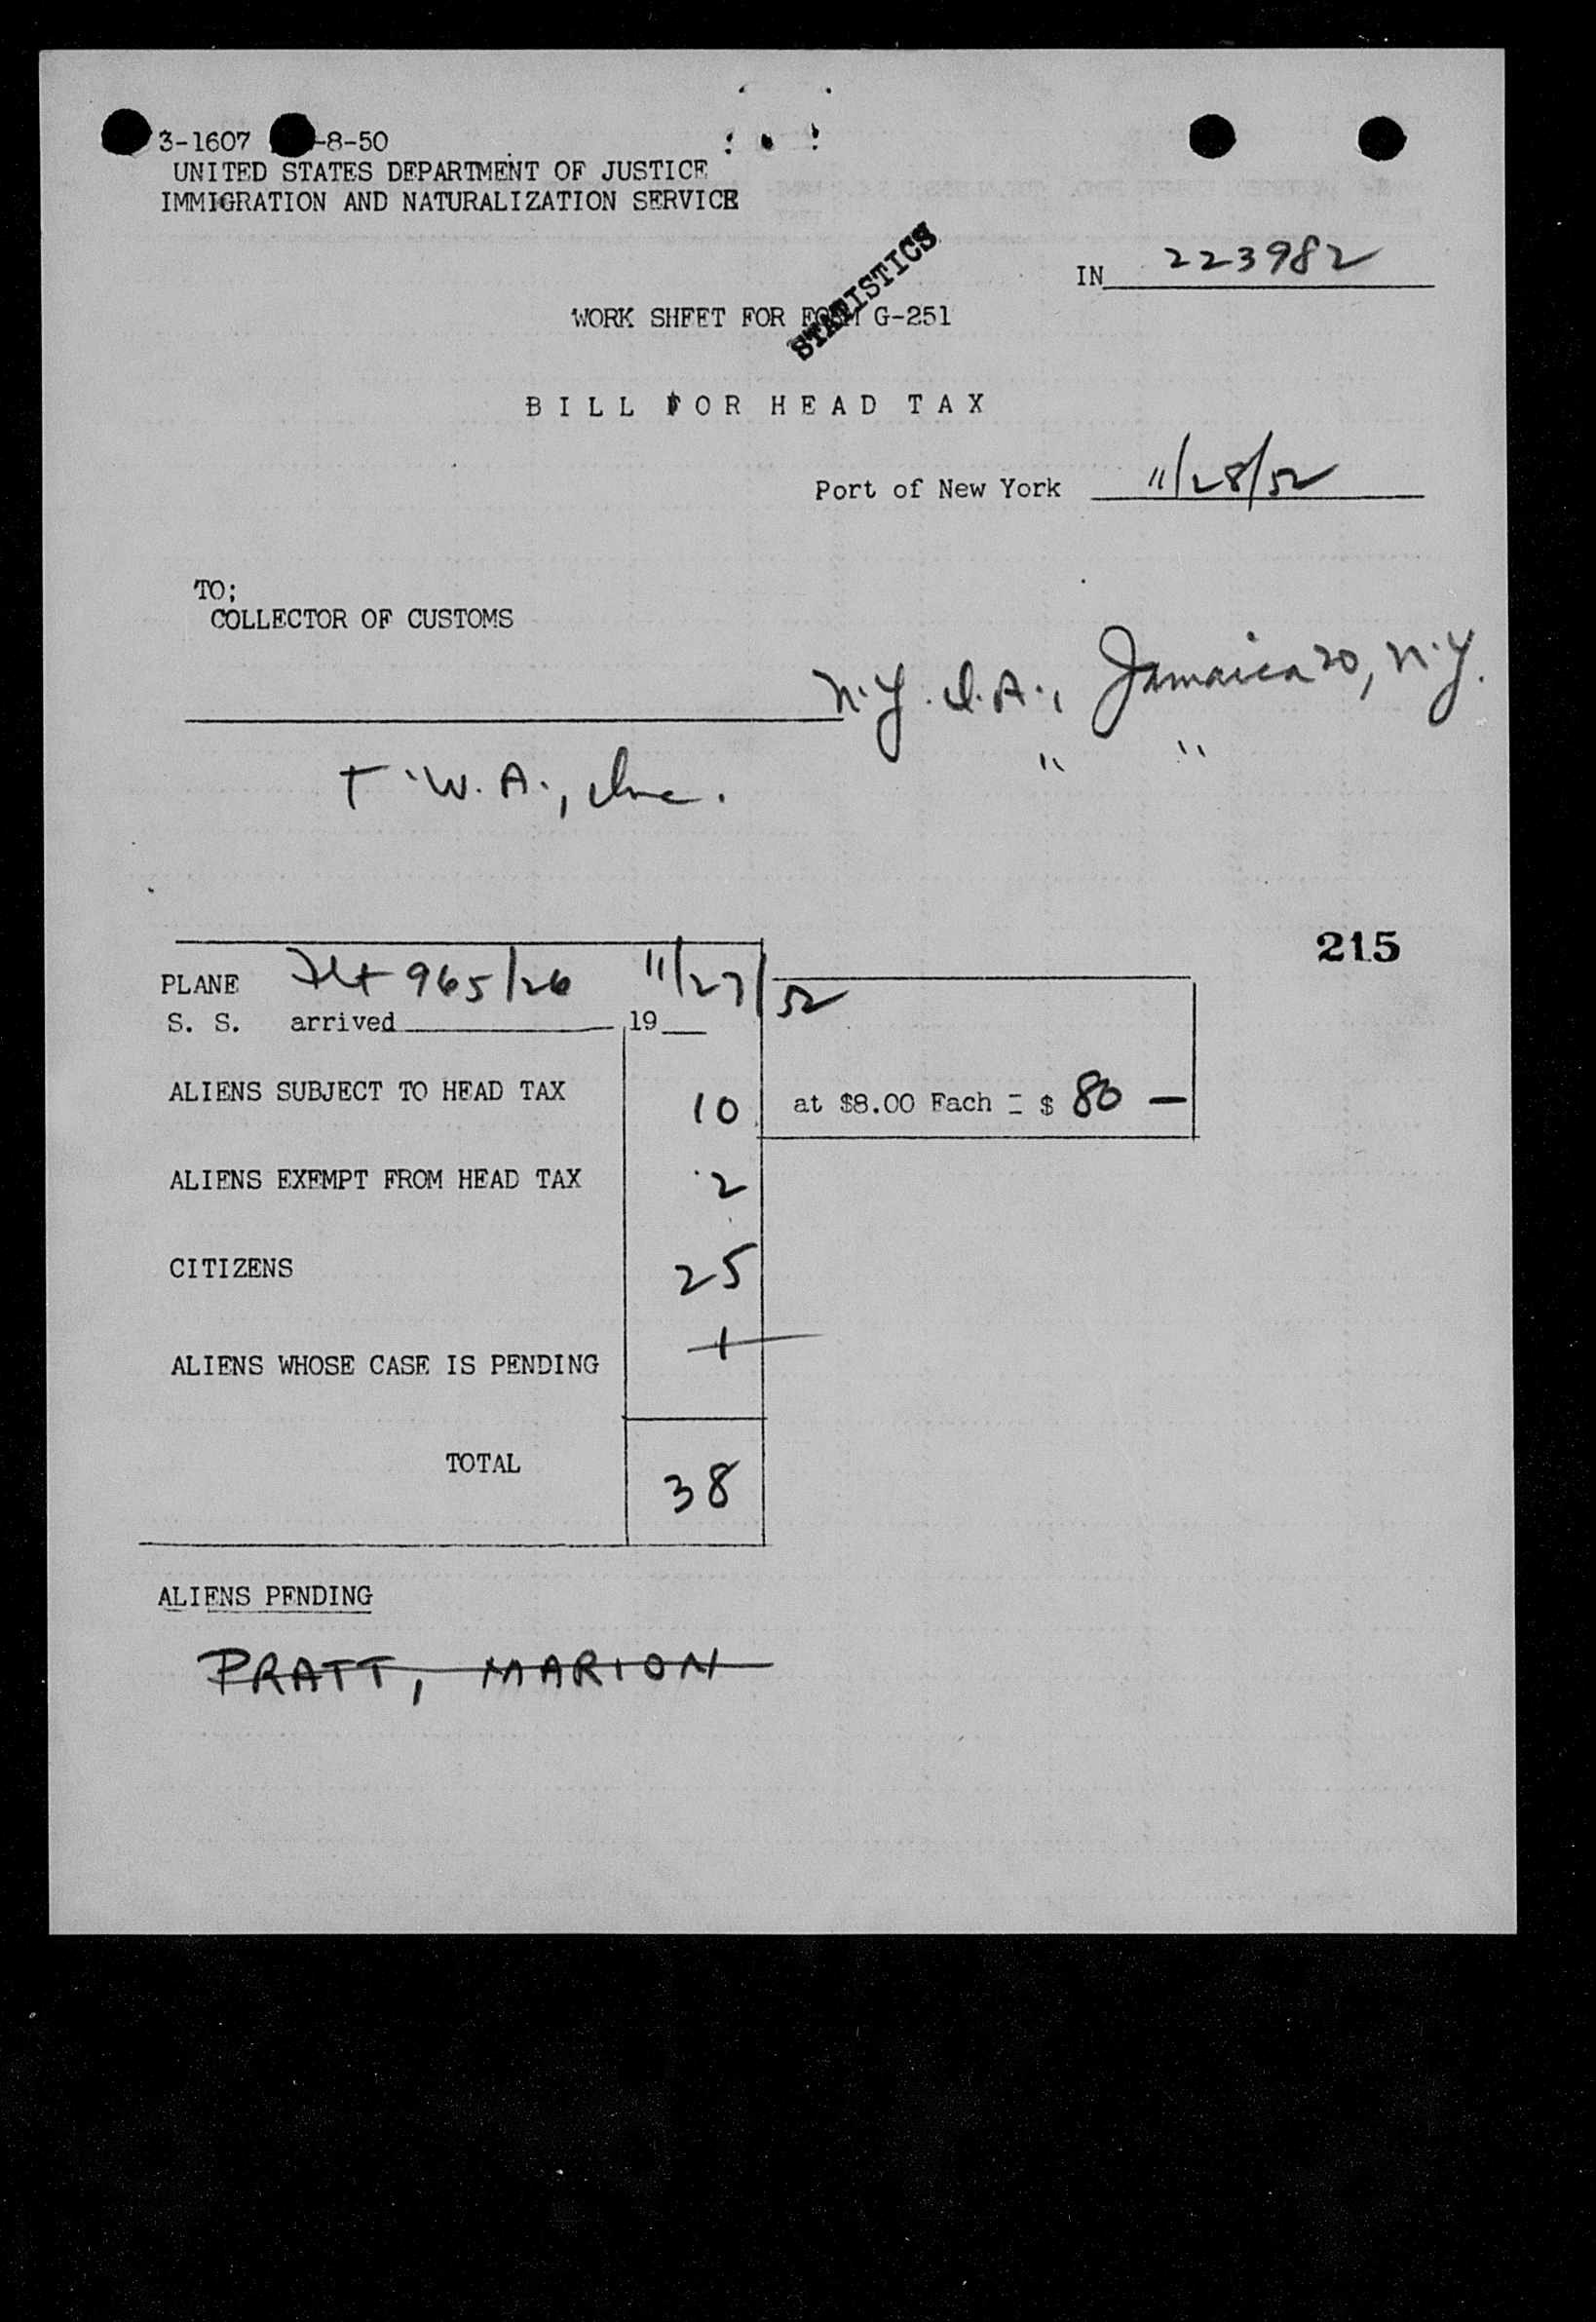 3-1607 -8-50
UNITED STATES DEPARTMENT OF JUSTICE
IMMIGRATION AND NATURALIZATION SERVICE
STATISTICS
IN 223982
WORK SHEET FOR FORM G-251
BILL FOR HEAD TAX
Port of New York 11/28/52
TO;
COLLECTOR OF CUSTOMS
N.Y. I.A., Jamaica 20, N.Y.
T.W.A., Inc. " "
215
PLANE Flt 965/26 11/27/52
S. S. arrived 19
ALIENS SUBJECT TO HEAD TAX 10 at $8.00 Each = $ 80 —
ALIENS EXEMPT FROM HEAD TAX 2
CITIZENS 25
ALIENS WHOSE CASE IS PENDING 1
TOTAL 38
ALIENS PENDING
PRATT, MARION